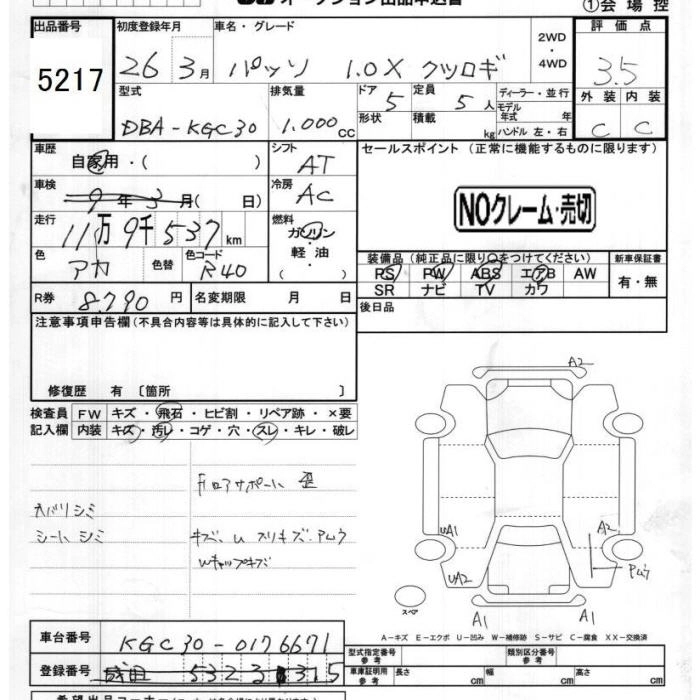 オークション出品申込書
①会場控
出品番号 初度登録年月 車名・グレード 評価点
5217 26 3月 パッソ 1.0X クツロギ 2WD・4WD 3.5
型式 排気量 ドア 5 定員 5人 ディーラー・並行 外装 内装
DBA-KGC30 1.000cc 形状 積載 kg モデル年式 年 ハンドル 左・右 C C
車歴 自家用・( ) シフト AT セールスポイント (正常に機能するものに限ります)
車検 9年3月( 日) 冷房 AC
NOクレーム・売切
走行 11万9千537km 燃料 ガソリン・軽油・( )
色 アカ 色替 色コード R40
装備品(純正品に限り○をつけてください) 新車保証書
PS PW ABS エアB AW 有・無
SR ナビ TV カワ
R券 8.790円 名変期限 月 日 後日品
注意事項申告欄(不具合内容等は具体的に記入して下さい)
修復歴 有〔箇所 〕
検査員 FW キズ・飛石・ヒビ割・リペア跡・×要
記入欄 内装 キズ・汚レ・コゲ・穴・スレ・キレ・破レ
フロアサポート 歪
天バリシミ
シートシミ
キズ、U スリキズ・PMウ
Wキャップキズ
A2
UA1 A2
UA2 PMウ
スペア
A1 A1
A-キズ E-エクボ U-凹み W-補修跡 S-サビ C-腐食 XX-交換済
車台番号 KGC30-0176671
型式指定番号 参考 類別区分番号 参考
登録番号 成田 532
車庫証明用 参考 長さ cm 幅 cm 高さ cm